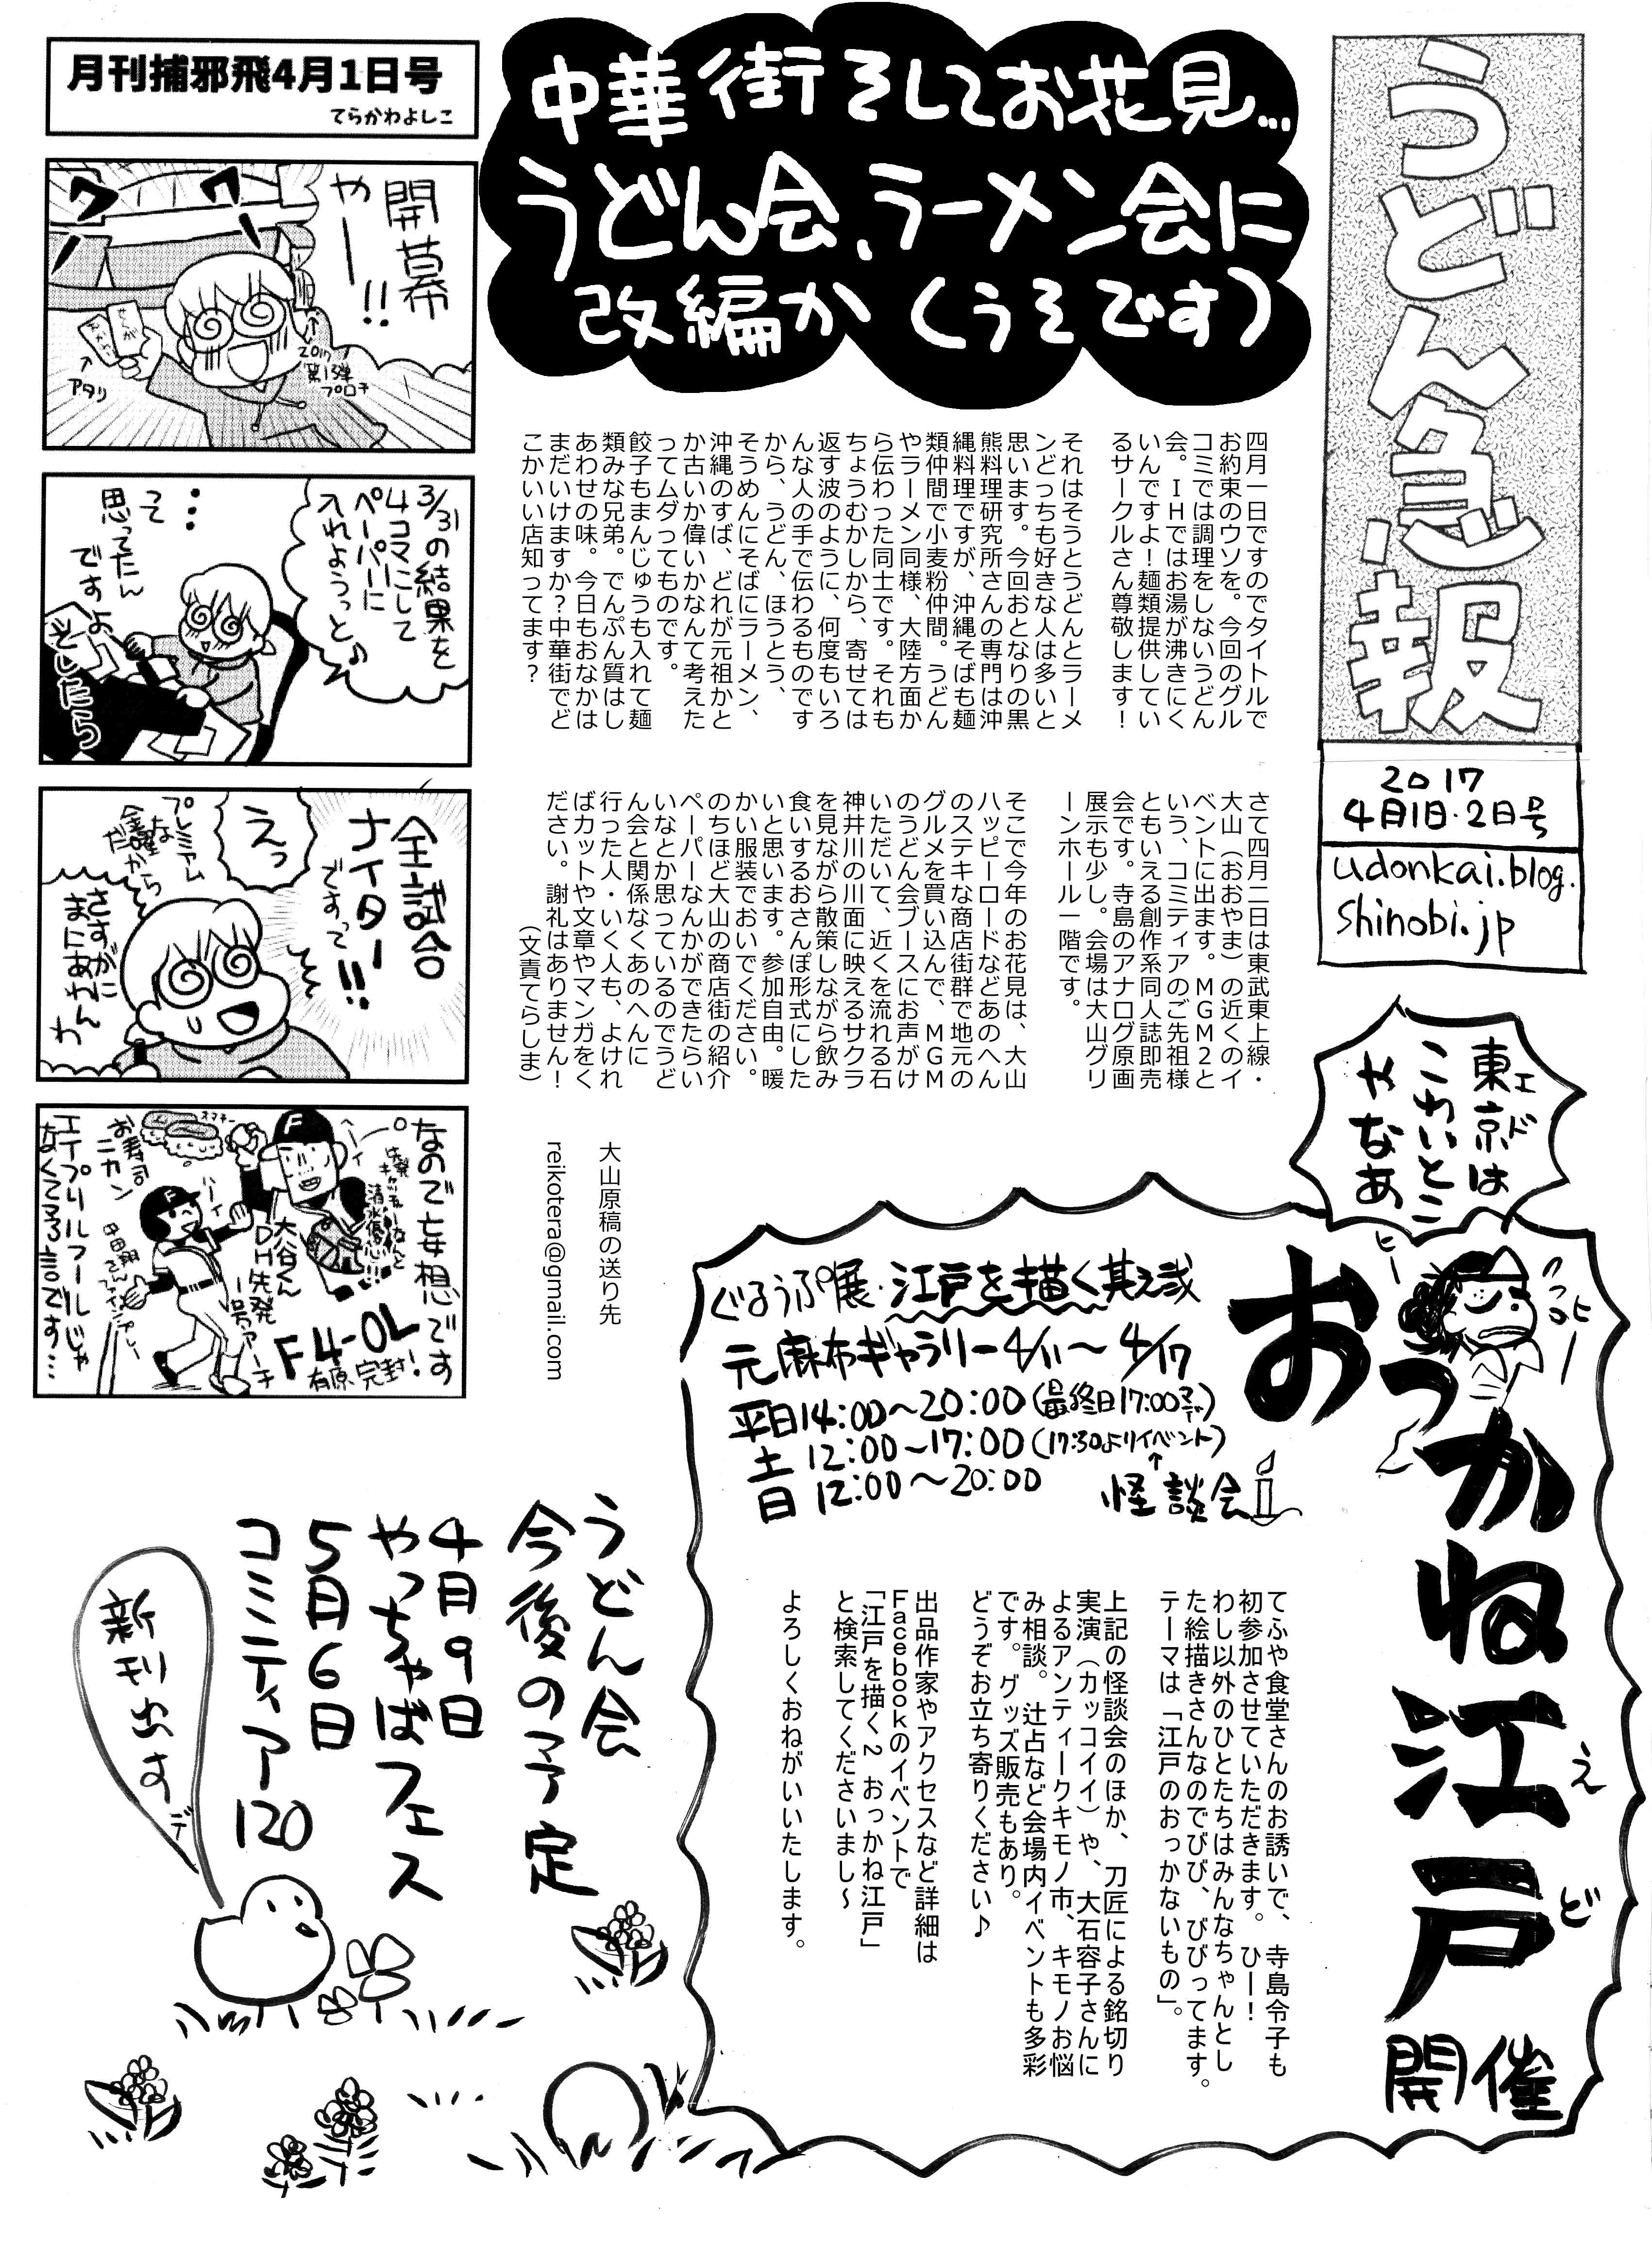 うどん急報
2017
4月1日・2日号
udonkai.blog.
shinobi.jp
中華街そしてお花見…
うどん会、ラーメン会に
改編か(うそです)
四月一日ですのでタイトルで
お約束のウソを。今回のグル
コミでは調理をしないうどん
会。IHではお湯が沸きにく
いんですよ!麺類提供してい
るサークルさん尊敬します!
それはそうとうどんとラーメ
ンどっちも好きな人は多いと
思います。今回おとなりの黒
熊料理研究所さんの専門は沖
縄料理ですが、沖縄そばも麺
類仲間で小麦粉仲間。うどん
やラーメン同様、大陸方面か
ら伝わった同士です。それも
ちょうむかしから、寄せては
返す波のように、何度もいろ
んな人の手で伝わるものです
から、うどん、ほうとう、
そうめんにそばにラーメン、
沖縄のすば、どれが元祖かと
か古いか偉いかなんて考えた
ってムダってものです。
餃子もまんじゅうも入れて麺
類みな兄弟。でんぷん質はし
あわせの味。今日もおなかは
まだいけますか?中華街でど
こかいい店知ってます?
さて四月二日は東武東上線・
大山(おおやま)の近くのイ
ベントに出ます。MGM2と
いう、コミティアのご先祖様
ともいえる創作系同人誌即売
会です。寺島のアナログ原画
展示も少し。会場は大山グリ
ーンホール一階です。
そこで今年のお花見は、大山
ハッピーロードなどあのへん
のステキな商店街群で地元の
グルメを買い込んで、MGM
のうどん会ブースにお声がけ
いただいて、近くを流れる石
神井川の川面に映えるサクラ
を見ながら散策しながら飲み
食いするおさんぽ形式にした
いと思います。参加自由。暖
かい服装でおいでください。
のちほど大山の商店街の紹介
ペーパーなんかができたらい
いなとか思っているのでうど
ん会と関係なくあのへんに
行った人・いく人も、よけれ
ばカットや文章やマンガをく
ださい。謝礼はありません!
(文責てらしま)
大山原稿の送り先
reikotera@gmail.com
月刊捕邪飛4月1日号
てらかわよしこ
開幕
やー!!
ワワ
2017
第1弾
プロ千
アタリ
3/31の結果を
4コマにして
ペーパーに
入れようっと♪
…
って
思ってたん
ですよ
そしたら
全試合
ナイター
ですって!!
えっ
プレミアム
な
金曜
だから
さすがに
まにあわん
わ
なので妄想です
大谷くん
DH先発
1号アーチ
F4-0L
有原完封!
お寿司
ニカン
エイプリルフールじゃ
なくて予言です…
東京は
エド
こわいとこ
やなあ
ヒー
ヒー
おっかね江戸
えど
開催
ぐるうぷ展・江戸を描く其之弐
元麻布ギャラリー4/11〜4/17
平日14:00〜20:00(最終日17:00まで)
土 12:00〜17:00(17:30よりイベント)
↑
怪談会
日 12:00〜20:00
てふや食堂さんのお誘いで、寺島令子も
初参加させていただきます。ひー!
わし以外のひとたちはみんなちゃんとし
た絵描きさんなのでびび、びびってます。
テーマは「江戸のおっかないもの」。
上記の怪談会のほか、刀匠による銘切り
実演(カッコイイ)や、大石容子さんに
よるアンティークキモノ市、キモノお悩
み相談。辻占など会場内イベントも多彩
です。グッズ販売もあり。
どうぞお立ち寄りください♪
出品作家やアクセスなど詳細は
Facebookのイベントで
「江戸を描く2 おっかね江戸」
と検索してくださいまし〜
よろしくおねがいいたします。
うどん会
今後の予定
4月9日
やっちゃばフェス
5月6日
コミティア120
新刊出すデ